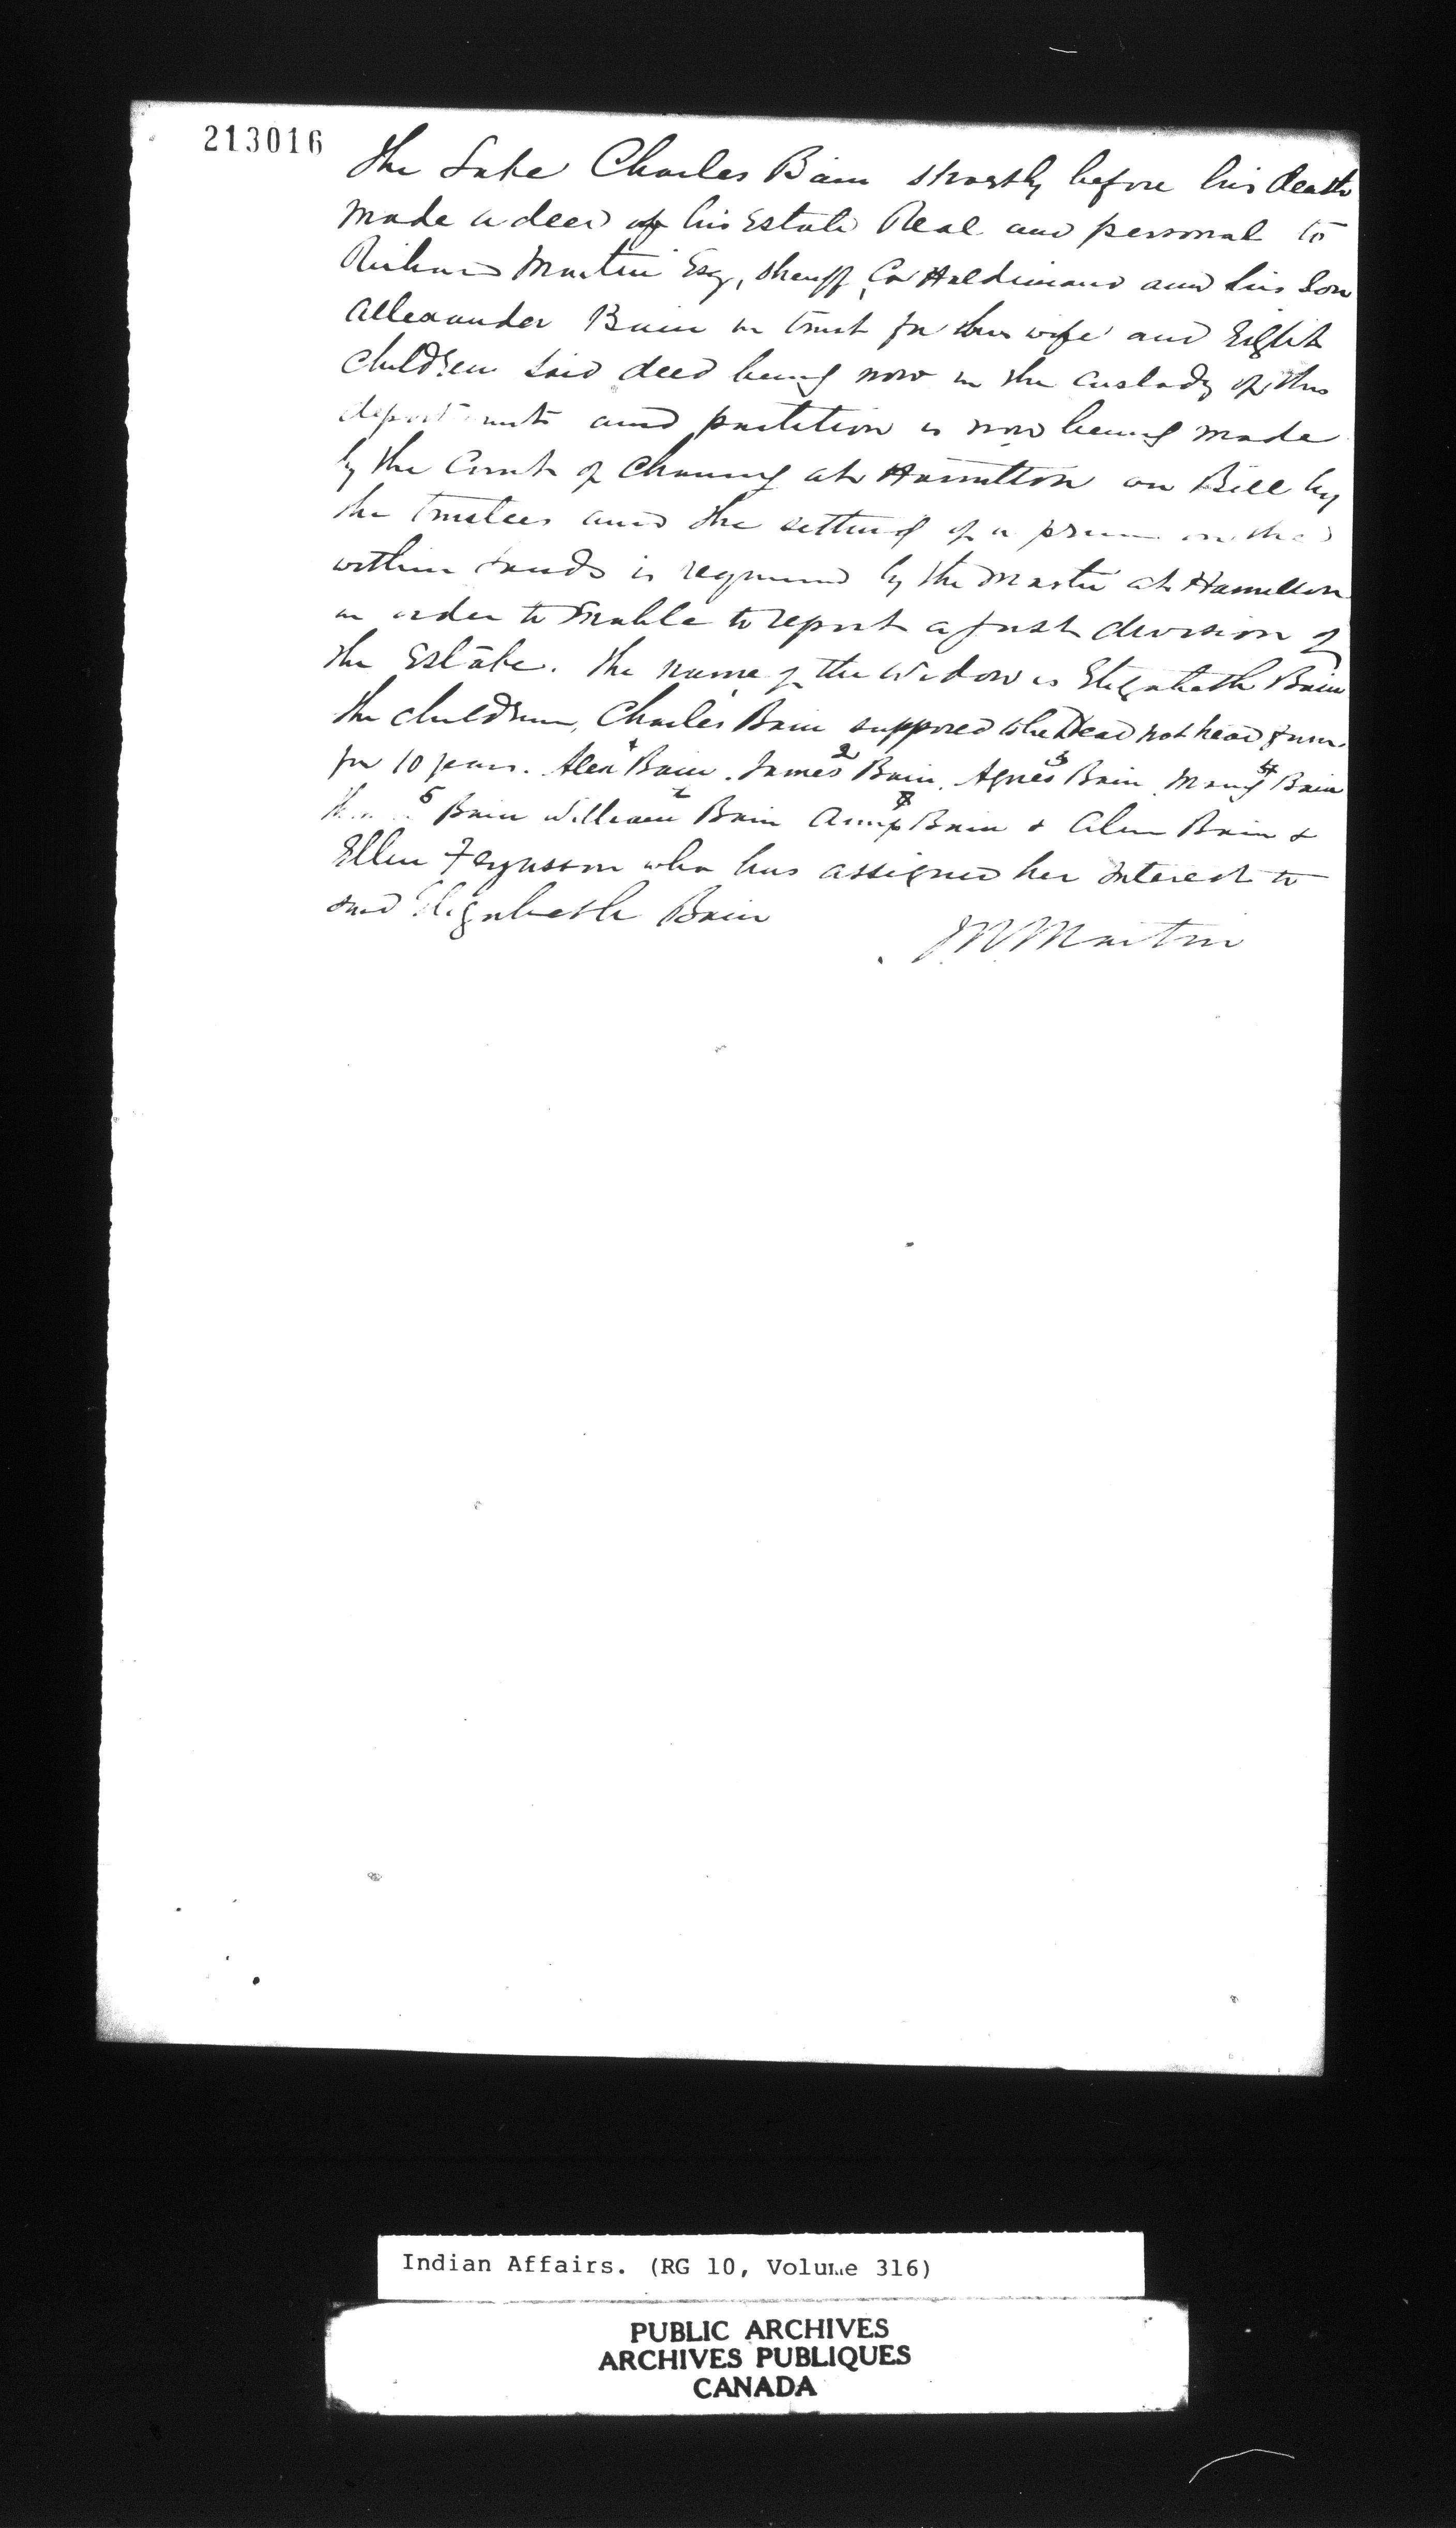 213016
The Late Charles Bain shortly before his death
made a deed of his Estate Real and personal to
Richard Martin Esq, Sheriff, Co Haldimand and his Son
Allexander Bain in trust for his wife and Eight
children said deed being now in the custody of this
department and partition is now being made
by the Court of Chancery at Hamilton on Bill by
the Trustees and the setting of a on the
within Lands is required by the Master at Hamilton
in order to Enable to report a just division of
the Estate. The name of the widow is Elizabeth Bain
the children, Charles Bain supposed to be Dead not heard from
for 10 years. Alex 1 Bain. James 2 Bain. Agnes 3 Bain Mary 4 Bain
5 Bain William Bain Bain & Bain &
Ellen Fergusson who has assigned her Interest to
said Elizabeth Bain
Martin
Indian Affairs. (RG 10, Volume 316)
PUBLIC ARCHIVES
ARCHIVES PUBLIQUES
CANADA